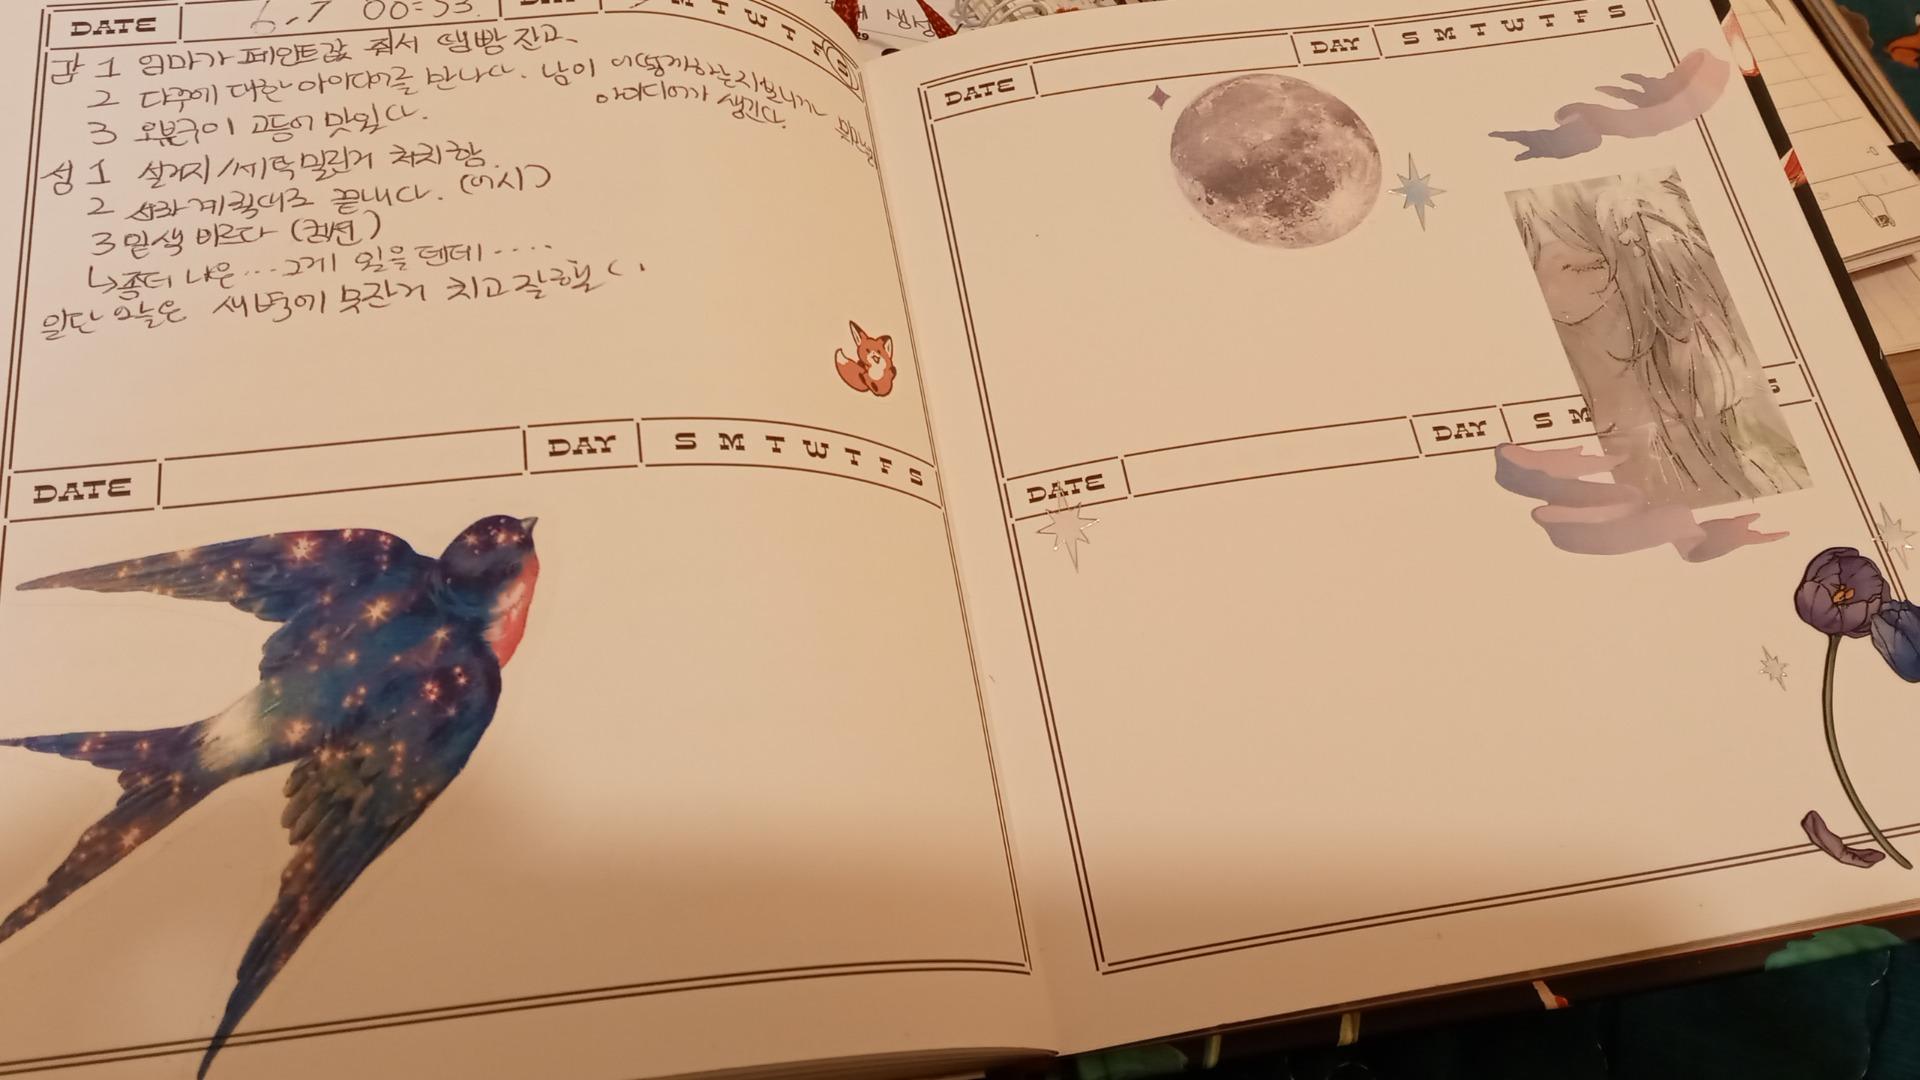 DATE 6.7 00:53. DAY S M T W T F S
감 1 엄마가 페인트값 줘서 땜빵 잔고.
2 다꾸에 대한 아이디어를 만나다. 남이 어떻게하는지보니까
아이디어가 생긴다.
3 오븐구이 고등어 맛있다.
성 1 설거지/세탁밀린거 처치함.
2 계획대로 끝내다. (어시)
3 밑색 바르다 (컴션)
↳좀더 나은...그게 있을텐데....
일단 오늘은 새벽에 못잔거 치고 잘했다.
DATE DAY S M T W T F S
DATE DAY S M T W T F S
DATE DAY S M S
생성